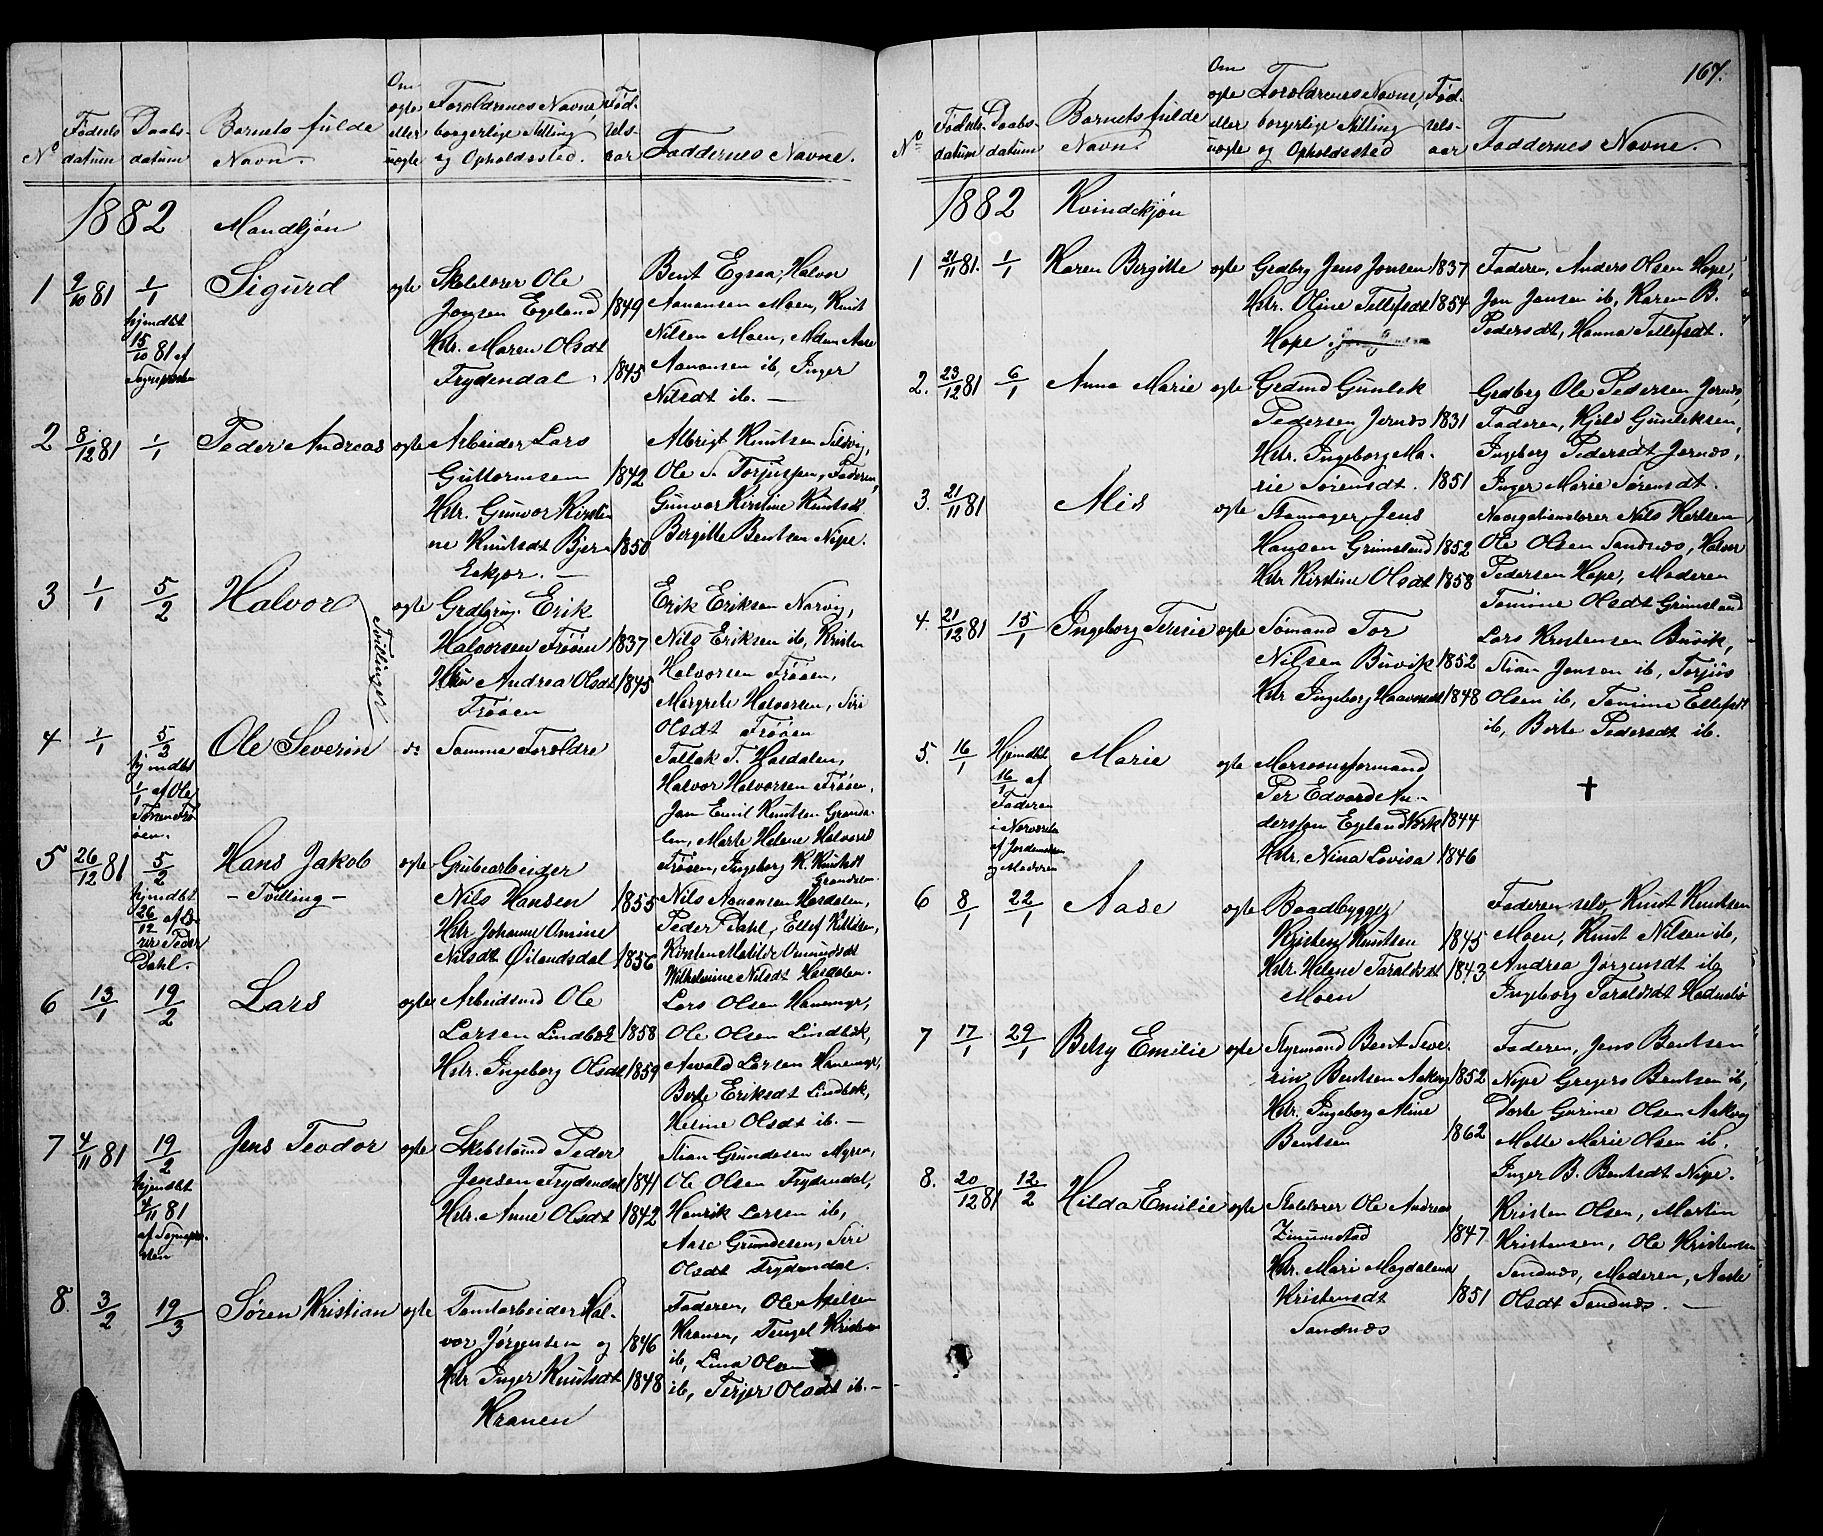 Nº
Fødsels
datum
Daabs-
datum
Barnets fulde
Navn.
Om
ægte
eller
uægte
Forældrenes Navne,
borgerlige Stilling
og Opholdssted.
Fød-
sels-
aar
Faddernes Navne.
1882
Mandkjøn
1
9/10 81
1/1
hjemdbt
15/10 81 af
Sogneprsten
Sigurd
ægte
Skolelærer Ole
Jensen Egeland 1849
Hstr. Maren Olsdt
Frydendal 1845
Bent Egraa, Halvor
Aanansen Moen, Knut
Nilsen Moen, Aase
Aanansen ib, Inger
Nilsdt ib. —
2
8/12 81
1/1
Peder Andreas
ægte
Arbeider Lars
Guttormsen 1842
Hstr. Gunvor Kirsti-
ne Knutsdt Bjer- 1850
Eekjær. —
Albrigt Knutsen
Ole S. Torjussen, Faderen,
Gunvor Kirstine Knutsdt
Bergitte Bentsen Nipe.
3
1/1
5/2
Halvor
Tvillinger
ægte
Grdbrug. Erik
Halvorsen Frøen 1837
Hstr Andrea Olsdt 1845
Frøen
Erik Eriksen Narvig,
Nils Eriksen ib, Kristen
Halvorsen Frøen,
Margrete Halvorsen, Siri
Olsdt Frøen
4
1/1
5/2
hjemdbt
1/1 af Ole
Frø-
en.
Ole Severin
do
Samme Forældre
Tallak T. Hasdalen,
Halvor Halvorsen Frøen,
Jan Emil Knutsen Granda-
len, Marte Helene Halvorsd
Frøen, Ingeborg K. Knutsdt
Grandalen
5
26/12 81
5/2
hjemdbt
26/12 af Læ-
rer Peder
Dahl.
Hans Jakob
- Tvilling -
ægte
Grubearbeider
Nils Hansen 1855
Hstr Johanne Amine
Nilsdt Øilandsdal 1856
Nils Aanansen Hasdalen,
Peder Dahl, Ellef Kittilsen,
Kirsten Matilde Omundsdt
Wilhelmine Nilsdt Hasdalen.
6
13/1
19/2
Lars
ægte
Arbeidsmd Ole
Larsen Lindbæk 1858
Hstr. Ingeborg Olsdt 1859
Lars Olsen Hanemyr,
Ole Olsen Lindbæk,
Aavald Larsen Hanemyr,
Berte Eriksdt Lindbæk,
Helene Olsdt ib. —
7
4/11 81
19/2
hjemdbt
/11 81
af Sognepre-
sten
Jens Teodor
ægte
Peder
Jensen Frydendal 1841
Hstr. Anne Olsdt 1842
Stian Gundesen Myren,
Ole Olsen Frydendal,
Henrik Larsen ib,
Aase Gundesen, Siri
Olsdt Frydendal.
8
3/2
19/3
Søren Kristian
ægte
Tomtarbeider Hal-
vor Jørgensen og 1846
Hstr Inger Knutsdt 1848
Kranen
Faderen, Ole Axelsen
Kranen, Tengel
ib, Lina Olsen
ib, Terjer Olsdt ib. —
167.
Nº
Fødsels-
datum
Daabs-
datum
Barnets fulde
Navn.
Om
ægte
eller
uægte
Forældrenes Navne,
borgerlige Stilling
og Opholdssted
Fød-
sels-
aar
Faddernes Navne.
1882
Kvindekjøn
1
21/11 81.
1/1
Karen Bergitte
ægte
Grdbrg Jens Jensen 1837
Hstr. Oline Tellefsdt 1854
Hope
Faderen, Anders Olsen Hope,
Jon Jonsen ib, Karen B.
Pedersdt, Hanna Tellefsdt.
2.
23/12 81
6/1
Anna Marie
ægte
Grdmd Gunlek
Pedersen Jernæs 1831
Hstr. Ingeborg Ma-
rie Sørensdt. 1851
Grdbrg Ole Pedersen Jernæs,
Faderen, Hjeld Gunleksen,
Ingeborg Pedersdt Jernæs,
Inger Marie Sørensdt.
3.
21/11 81
Alis
ægte
Jens
Hansen Grimsland 1852
Hstr Kirstine Olsdt 1858
Navigationslærer Nils Karlsen
Ole Olsen Sandnæs, Halvor
Pedersen Hope, Moderen
Tomine Olsdt Grimsland
4.
21/12 81
15/1
Ingeborg Terese
ægte
Sømand Tor
Nilsen Buvik 1852
Hstr Ingeborg Haavorsdt 1848
Lars Kristensen Buvik,
Stian Jensen ib, Torjus
Olsen ib, Tomine Ellefsdt
ib, Berte Pedersdt ib.
5.
16/1
Hjemdbt
16/1 af
Faderen
i Nærværelse
af Jordemoderen
og Moderen
Marie
ægte
Per Edvard An-
dersson Egeland Værk 1844
Hstr. Nina Lovisa 1846
✝
6
8/1
22/1
Aase
ægte
Baadbygger
Kristen Knutsen 1845
Hstr. Helene Taraldsdt 1843
Moen
Faderen selv Knut Knutsen
Moen, Knut Nilsen ib,
Andrea Jørgensdt ib
Ingeborg Taraldsdt
7
17/1
29/1
Betsy Emilie
ægte
Styrmand Bent Seve-
rin Bentsen Aakvg 1852
Hstr. Ingeborg Aline
Bentsen 1862
Faderen, Jens Bentsen
Nipe Gregers Bentsen ib,
Dorte Gurine Olsen Aakvg
Malle Marie Olsen ib.
Inger B. Bentsdt Nipe.
8.
20/12 81
12/2
Hilda Emilie
ægte
Skolelærer Ole Andreas
Zimmestad 1847
Hstr. Mari Magdalena
Kristensdt 1851
Sandnæs
Kristen Olsen, Martin
Kristensen, Ole Kristensen
Sandnæs, Moderen, Aaste
Olsdt Sandnæs. —